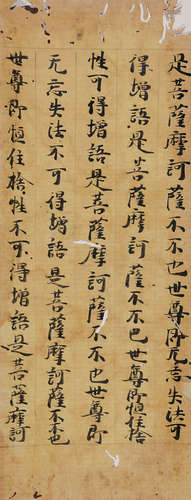 是菩薩摩訶薩不不也世尊即无忘失法可
得增語是菩薩摩訶薩不不也世尊即恒住捨
性可得增語是菩薩摩訶薩不不也世尊即
无忘失法不可得增語是菩薩摩訶薩不不也
世尊即恒住捨性不可得增語是菩薩摩訶